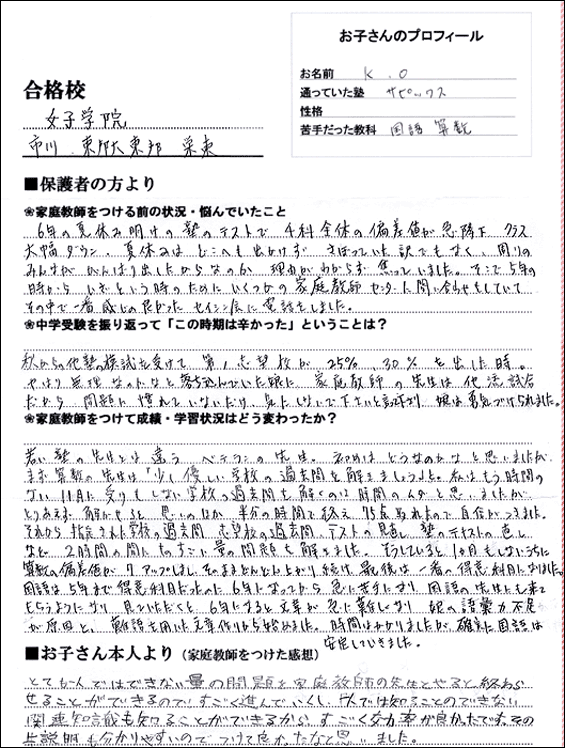 お子さんのプロフィール
お名前 K.O
通っていた塾 サピックス
性格
苦手だった教科 国語 算数
合格校
女子学院
市川 東邦大東邦 栄東
■保護者の方より
❀家庭教師をつける前の状況・悩んでいたこと
6年の夏休み明けの塾のテストで 4科全体の偏差値が急降下 クラス
大幅ダウン。夏休みはどこへも出かけず さぼっていた訳でもなく、周りの
みんながんばり出したからなのか 理由がわからず焦っていました。そこで5年の
時から いざという時のために いくつかの家庭教師センターに問い合わせをしていて
その中で一番感じの良かった セイシン屋に電話をしました。
❀中学受験を振り返って「この時期は辛かった」ということは?
秋からの他塾の模試を受けて 第1志望校が 25%、30%を出した時。
やはり無理なのかなと落ち込んでいた頃に 家庭教師の先生は他流試合
だから 問題に慣れていないだけ 気にしないで下さいと 娘は勇気づけられました。
❀家庭教師をつけて成績・学習状況はどう変わったか?
若い塾の先生とは違う ベテランの先生。初めはどうなのかなと思いましたが
まず算数の先生は「少し優しい学校の過去問を解きましょう」と。私はもう時間の
ない11月に受りもしない学校の過去問を解くのは時間のムダと思いましたが
とりあえず 解かせると 思いのほか 半分の時間で終え 75点も取れたので自信がつきました。
それから 指定された学校の過去問 志望校の過去問、テストの見直し 塾のテキストの直し
など 2時間の間に ものすごい量の問題を解きました。そうしていると1ヶ月もしないうちに
算数の偏差値が 7アップしまし、そのまどんどん上がり続け 最後は一番の得意科目になりました。
国語は5年まで得意科目だったのに 6年になってから 急に苦手になり 国語の先生にも来て
もらうようになり 見ていただくと 6年になると文章が急に難しくなり 娘の語彙力不足
が原因と、難語を用いた文章作りから始めました。時間はかかりましたが、確実に国語は
安定していきました。
■お子さん本人より(家庭教師をつけた感想)
とても一人ではできない量の問題を家庭教師の先生とやると終わら
せることができるので、すごく進んでいくし、1人では知ることのできない
関連知識も知ることができるから すごく効率が良かったです。その
上説明も分かりやすいので つけて良かったなと思いました。